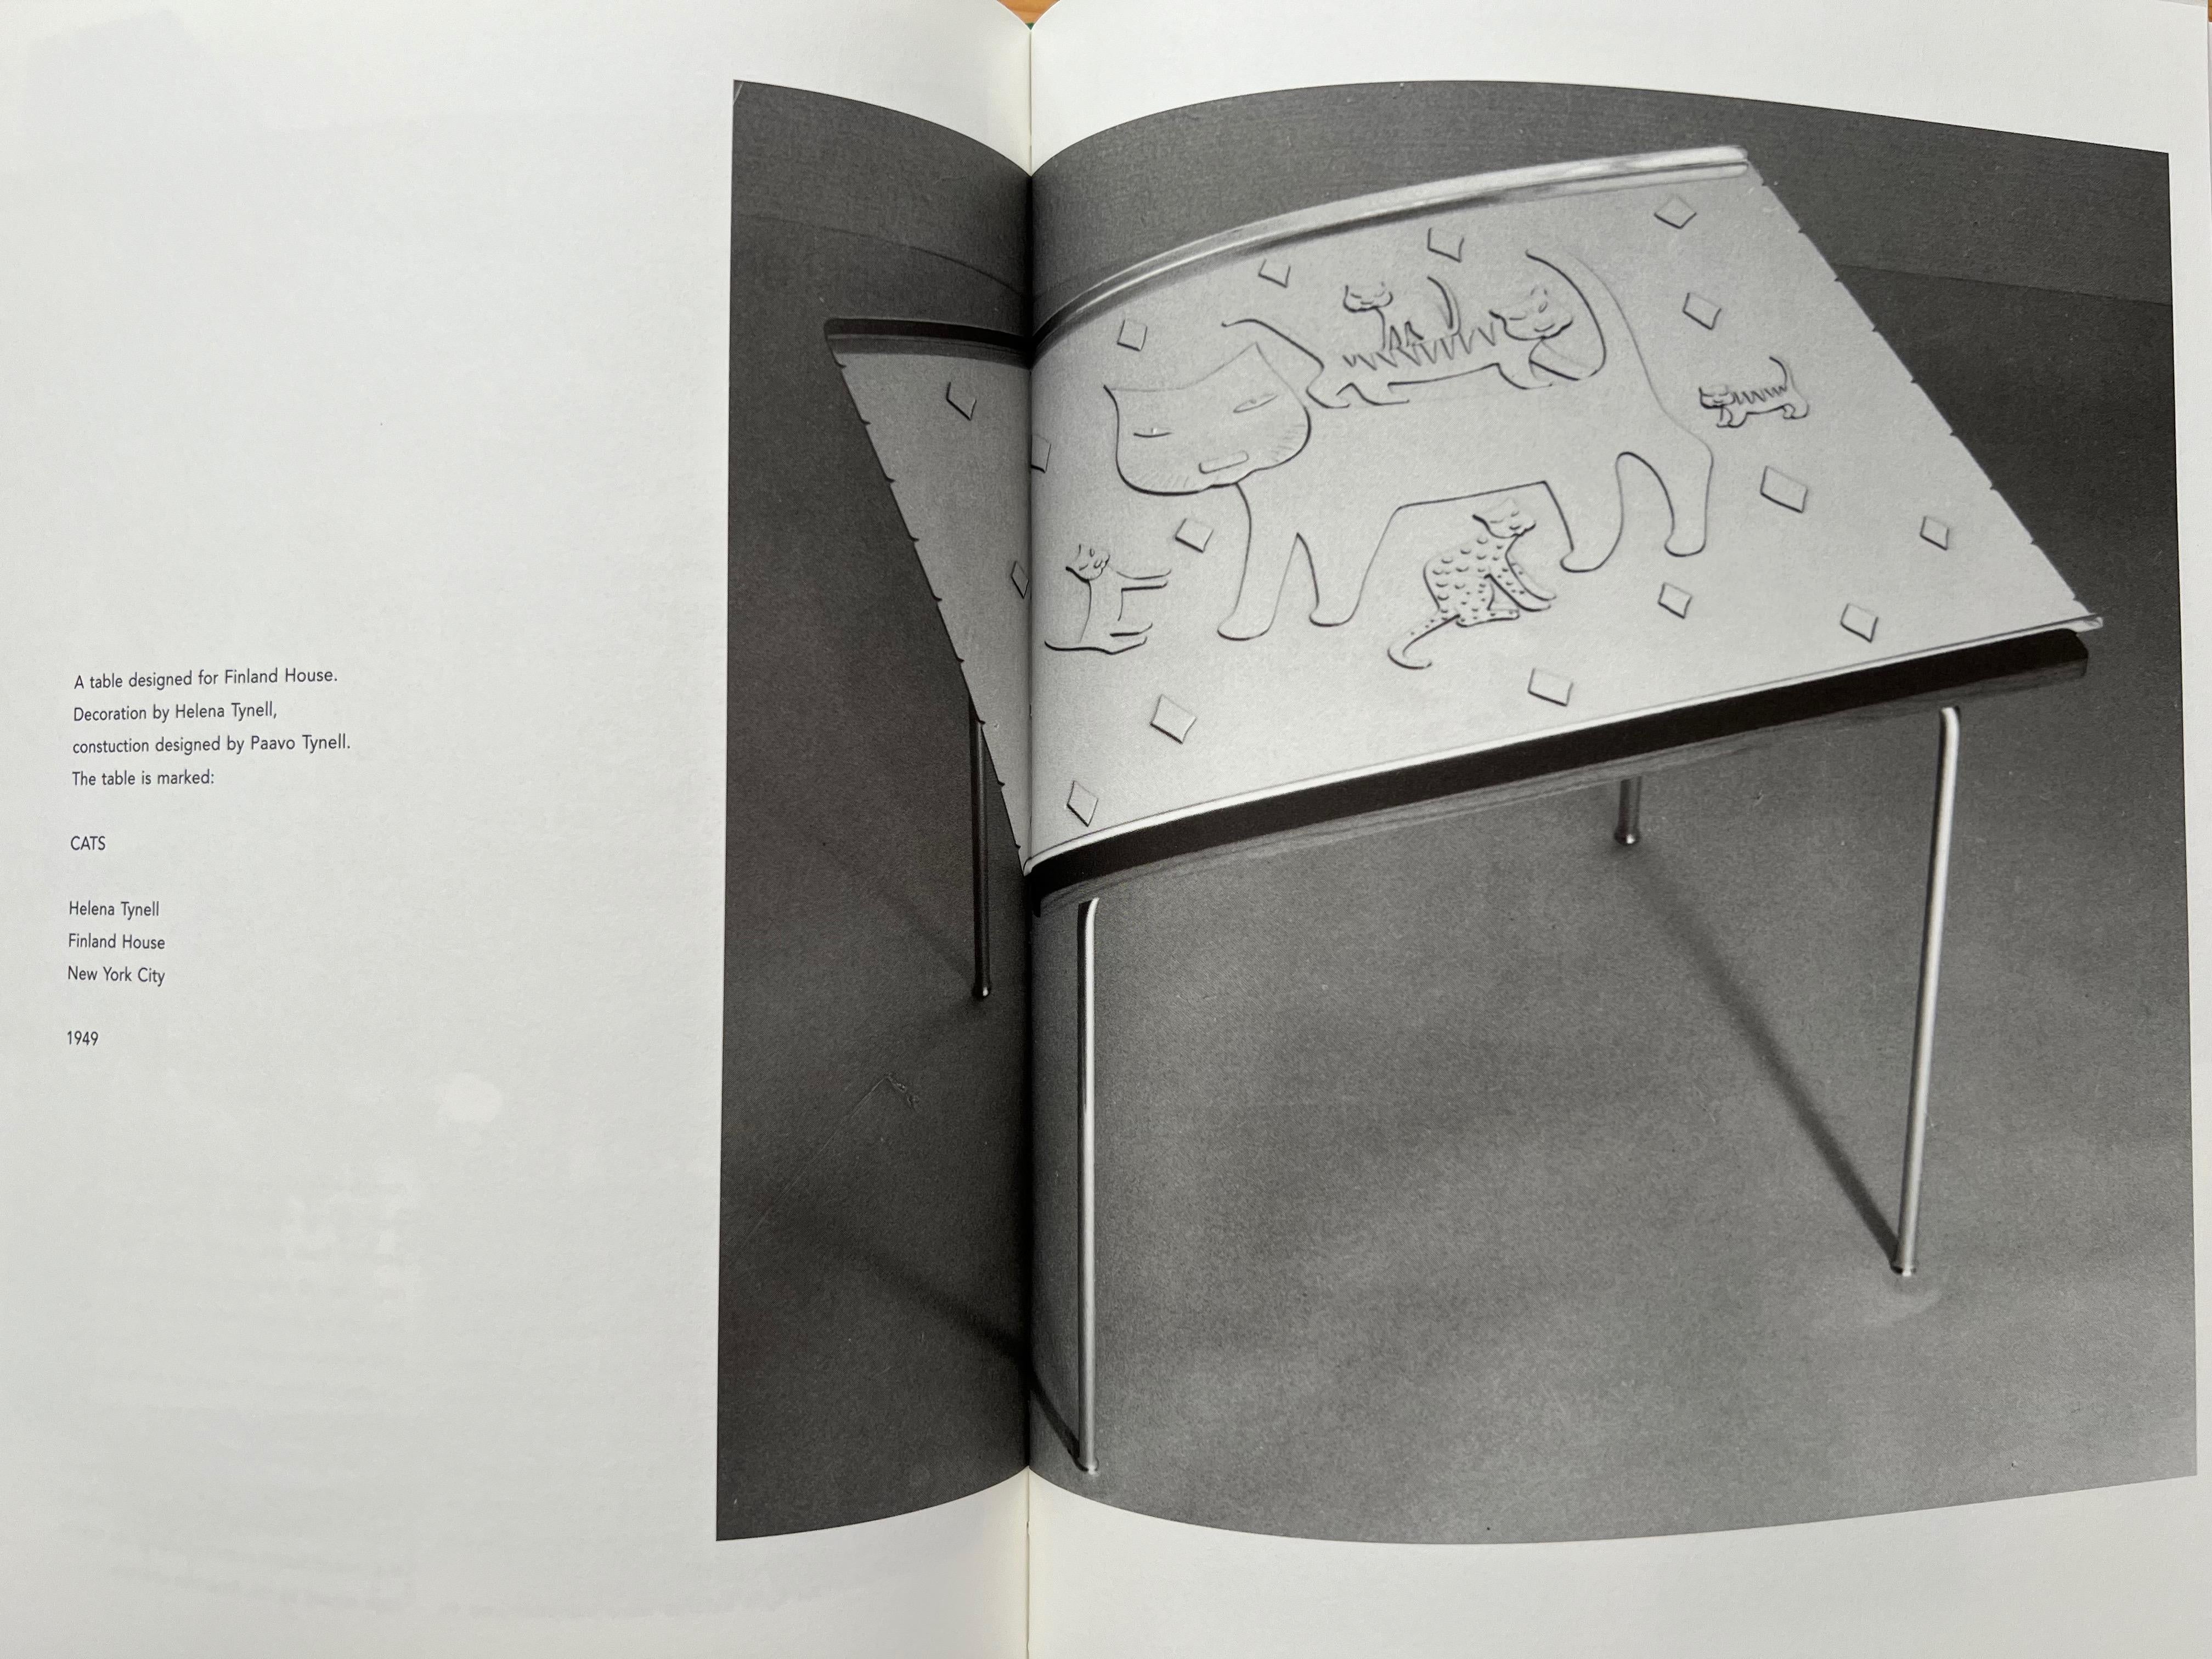 A table designed for Finland House.
Decoration by Helena Tynell,
constuction designed by Paavo Tynell.
The table is marked:
CATS
Helena Tynell
Finland House
New York City
1949